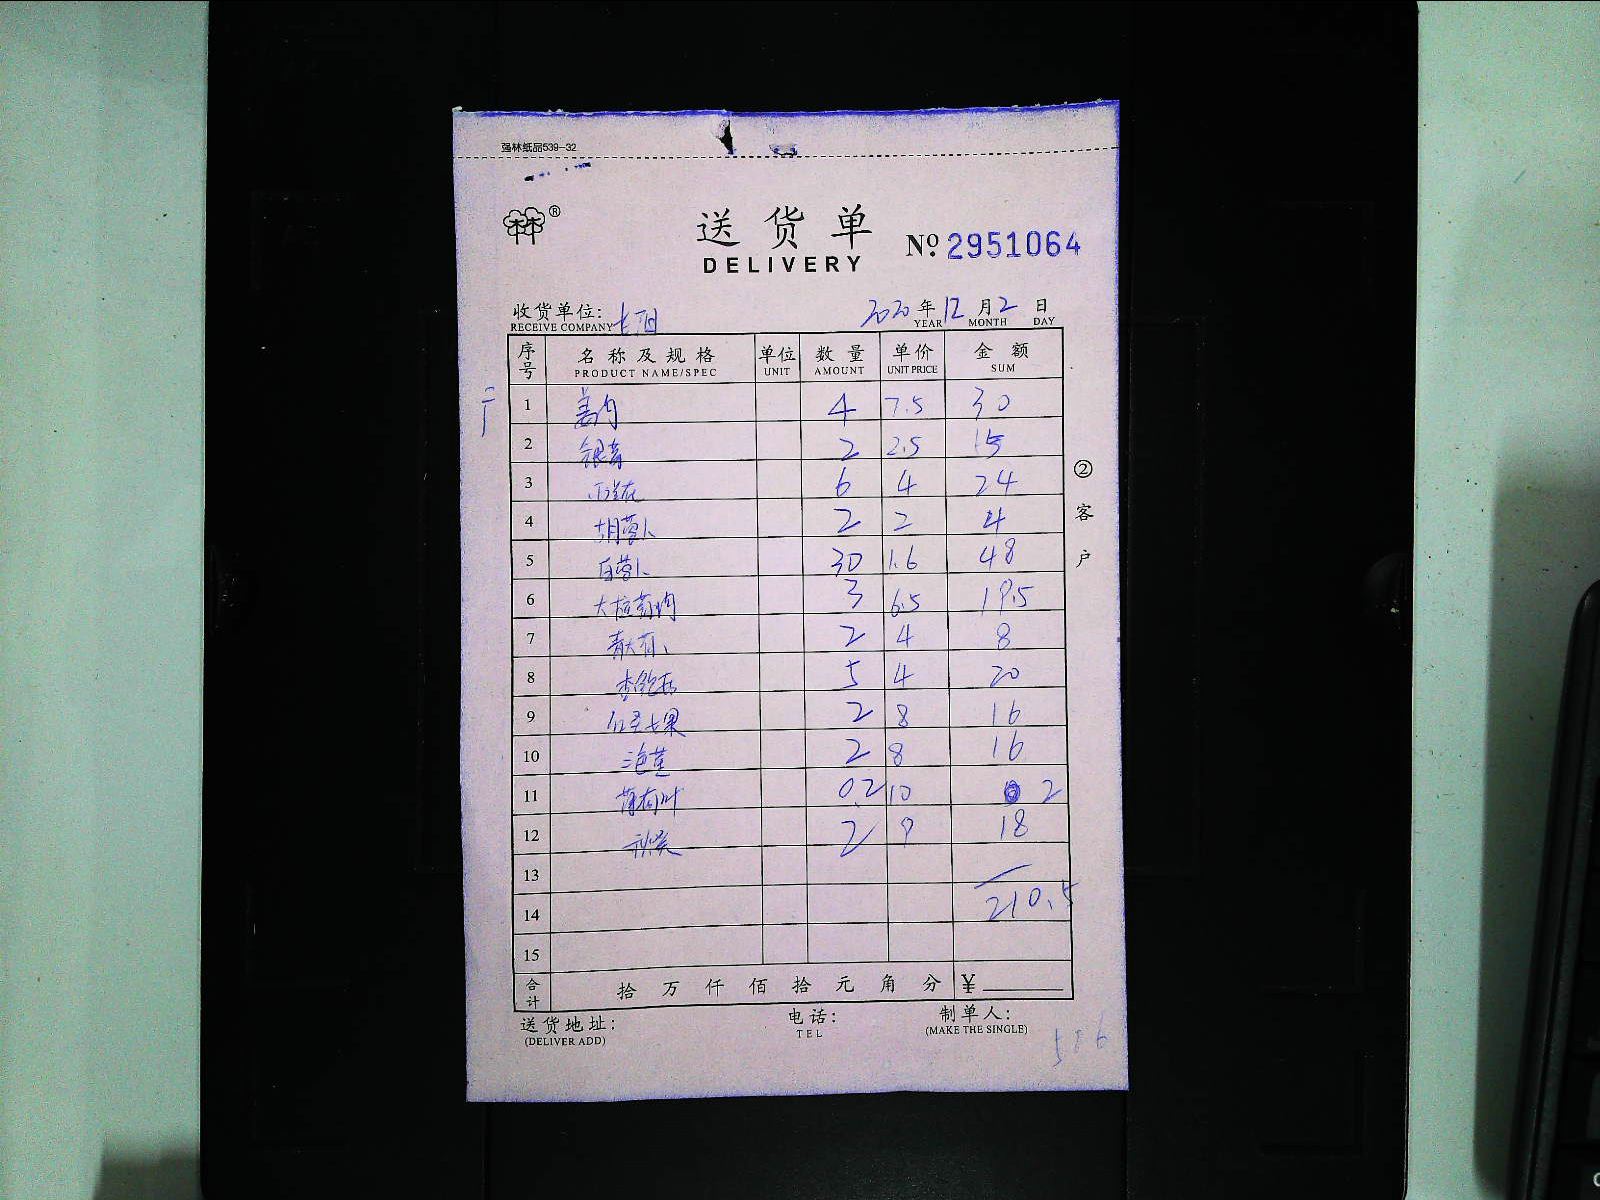 强林纸品539-32
林林 ®
送货单 No. 2951064
DELIVERY
收货单位: 2020 年 12 月 2 日
RECEIVE COMPANY YEAR MONTH DAY
序号 名称及规格 单位 数量 单价 金额
PRODUCT NAME/SPEC UNIT AMOUNT UNIT PRICE SUM
1 姜肉 4 7.5 30
2 银芽 2 2.5 15
3 6 4 24
4 胡萝卜 2 2 4
5 白萝卜 30 1.6 48
6 3 6.5 19.5
7 2 4 8
8 杏鲍菇 5 4 20
9 2 8 16
10 2 8 16
11 薄荷叶 0.2 10 2
12 秋葵 2 9 18
13
14 210.5
15
合计 拾 万 仟 佰 拾 元 角 分 ¥
送货地址: 电话: 制单人:
(DELIVER ADD) TEL (MAKE THE SINGLE)
② 客户